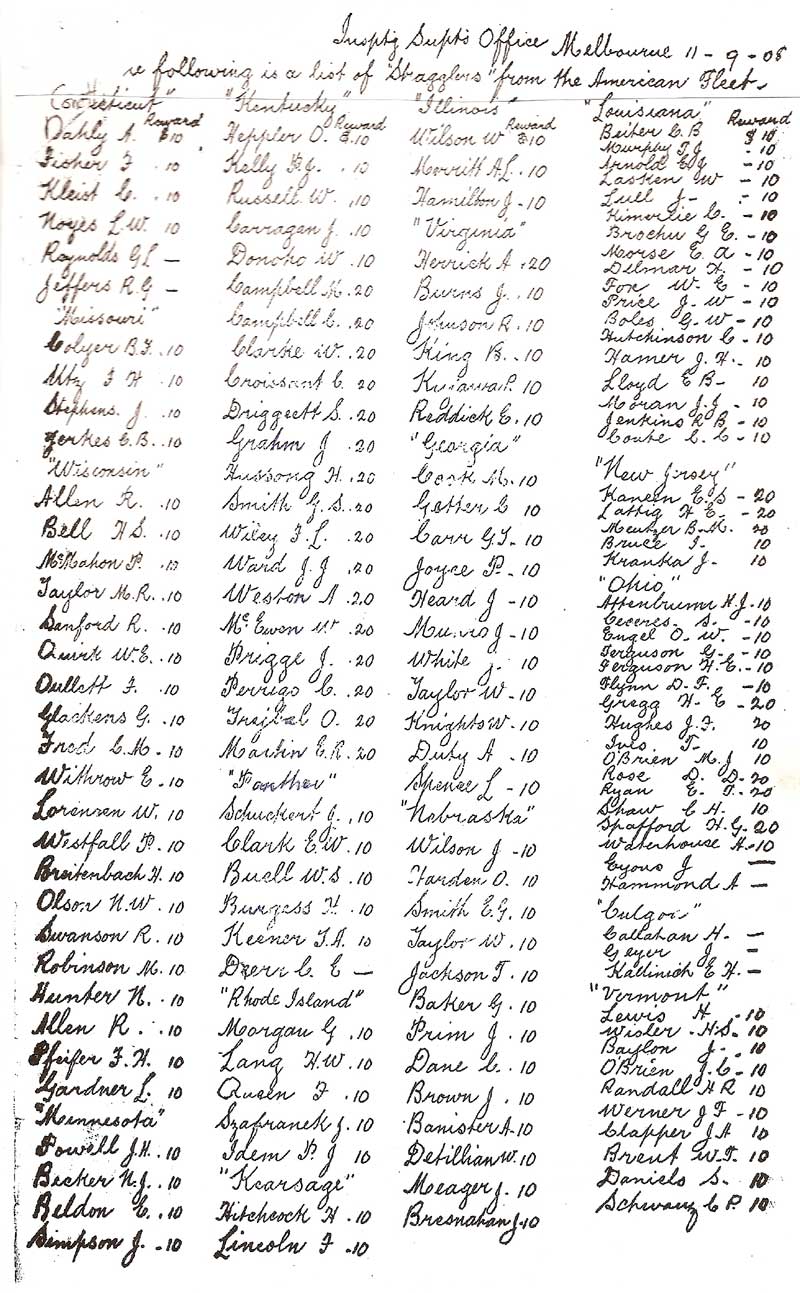 Insptg Supts Office Melbourne 11 - 9 - 08
e following is a list of "Stragglers" from the American Fleet.
Connecticut"
Reward
Dahly A. $10
Fisher F .10
Kleist C. .10
Noyes L.W. 10
Reynolds G L —
Jeffers R.G —
"Missouri"
Colyer B.F. .10
Utz F H .10
Stephens. J. .10
Yerkes C.B. .10
"Wisconsin"
Allen R. .10
Bell H S. .10
McMahon P. .10
Taylor M.R. .10
Sanford R. .10
Quirk W.E. .10
Oullett F. .10
Glackens G. .10
Fred C.M. .10
Withrow E. .10
Lorenzen W. 10
Westfall P. .10
Breitenbach H. 10
Olson N.W. .10
Swanson R. .10
Robinson M. 10
Hunter N. .10
Allen R. .10
Pfeifer F.H. 10
Gardner L. 10
"Minnesota"
Powell J.H. .10
Becker N.J. .10
Beldon E. .10
Simpson J. .10
"Kentucky"
Reward
Heppler O. $.10
Kelly P.J. .10
Russell W. .10
Carragan J. .10
Donoho W. .10
Campbell M. 20
Campbell C. .20
Clarke W. .20
Croissant C. 20
Driggett S. .20
Grahm J .20
Hussong H. .20
Smith G.S. .20
Wiley F.L. .20
Ward J.J .20
Weston A .20
McEwen W .20
Prigge J. .20
Perrigo C. .20
Trejbal O. 20
Martin E.R. 20
"Panther"
Schuckert J. .10
Clark E.W. 10
Buell W.S. .10
Burgess H. .10
Keener T.A. 10
C E —
"Rhode Island"
Morgan G .10
Lang H.W. .10
Queen F .10
Szafranek J. .10
Idem P.J 10
"Kearsage"
Hitchcock H .10
Lincoln F .10
"Illinois"
Reward
Wilson W $10
Merritt A.L. .10
Hamilton J. 10
"Virginia"
Herrick A .20
Burns J. .10
Johnson R. .10
King B. .10
Kujawa P. 10
Reddick E. 10
"Georgia"
Cook M. 10
Getter C 10
Carr G.T. 10
Joyce P. - 10
Heard J - 10
J - 10
White J. 10
Taylor W - 10
Knights W. 10
Duty A. 10
Spence L - 10
"Nebraska"
Wilson J - 10
Harden O. 10
Smith E.G. 10
Taylor W. 10
Jackson T. 10
Baker G. 10
Prim J. 10
Dane C. 10
Brown J. 10
Banister A. 10
Detillian W. 10
Meager J. 10
Bresnahan J. 10
"Louisiana"
Reward
Beiter C.B $ 10
Murphy T.J - 10
Arnold E.J - 10
Lasken W - 10
Lull J - 10
Kimerlie C. - 10
Brochu G E. - 10
Morse E. A - 10
Dilmar H. - 10
Fox W. E - 10
Price J. W - 10
Boles G. W - 10
Hutchinson C - 10
Hamer J. H. 10
Lloyd E B - 10
Moran J.J. - 10
Jenkins R B. - 10
Coute C. C - 10
"New Jersey"
Kaneen E.S - 20
Lattig H E. - 20
Mentzer B.M. 20
Bruce F. 10
Kranka J. 10
"Ohio"
Attenbrumi H.J. 10
Ceceres. S. - 10
Engel O. W. - 10
Ferguson G. - 10
Ferguson H.E. - 10
Flynn D.F. - 10
Gregg H. E - 20
Hughes J.F. 20
Ives. T. 10
O'Brien M.J 10
Rose D. D - 20
Ryan E. T. 20
Shaw C H. 10
Spafford H.G. 20
Waterhouse A. 10
Eyons J —
Hammond A —
"Culgoa"
Callahan H. —
Geyer J —
Kallinich E H. —
"Vermont"
Lewis H - 10
Wisler - H.S. 10
Baylon J. 10
O'Brien J.C - 10
Randall H R 10
Werner J F - 10
Clapper J.A 10
Brent W.T. 10
Daniels S. 10
Schwarz C P. 10